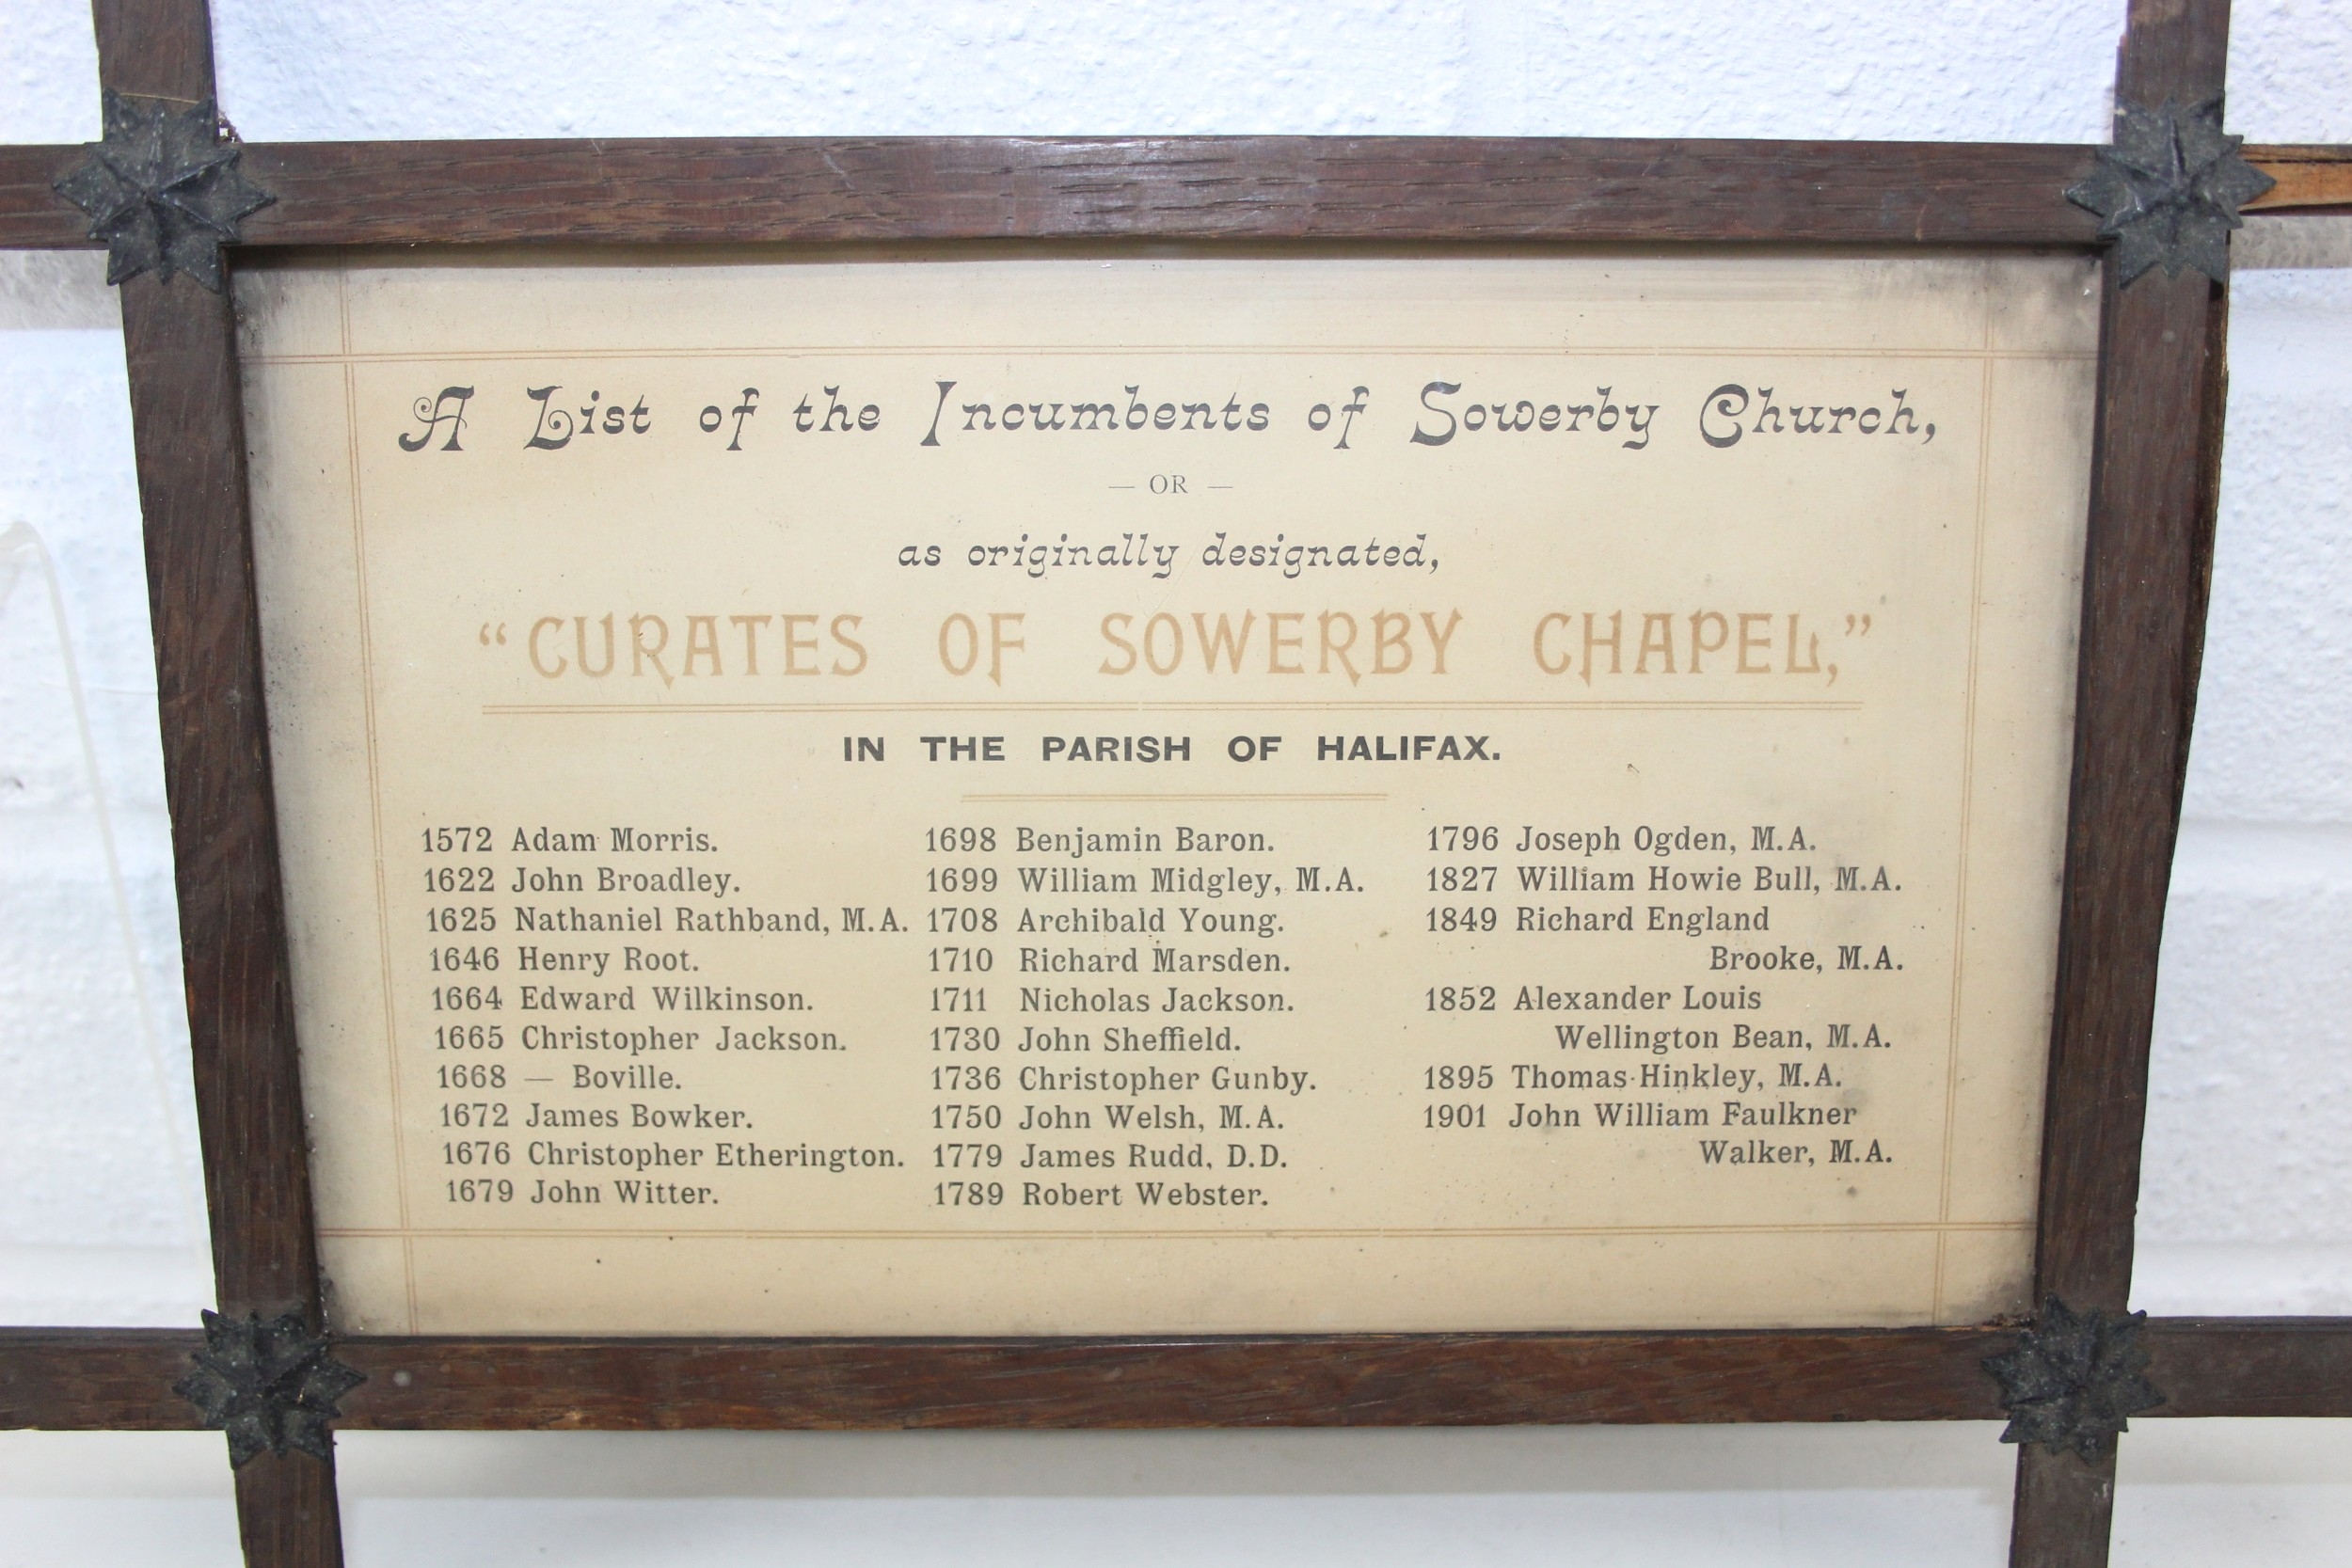 A List of the Incumbents of Sowerby Church,
— OR —
as originally designated,
“CURATES OF SOWERBY CHAPEL,”
IN THE PARISH OF HALIFAX.
1572 Adam Morris.
1622 John Broadley.
1625 Nathaniel Rathband, M.A.
1646 Henry Root.
1664 Edward Wilkinson.
1665 Christopher Jackson.
1668 — Boville.
1672 James Bowker.
1676 Christopher Etherington.
1679 John Witter.
1698 Benjamin Baron.
1699 William Midgley, M.A.
1708 Archibald Young.
1710 Richard Marsden.
1711 Nicholas Jackson.
1730 John Sheffield.
1736 Christopher Gunby.
1750 John Welsh, M.A.
1779 James Rudd, D.D.
1789 Robert Webster.
1796 Joseph Ogden, M.A.
1827 William Howie Bull, M.A.
1849 Richard England
Brooke, M.A.
1852 Alexander Louis
Wellington Bean, M.A.
1895 Thomas Hinkley, M.A.
1901 John William Faulkner
Walker, M.A.